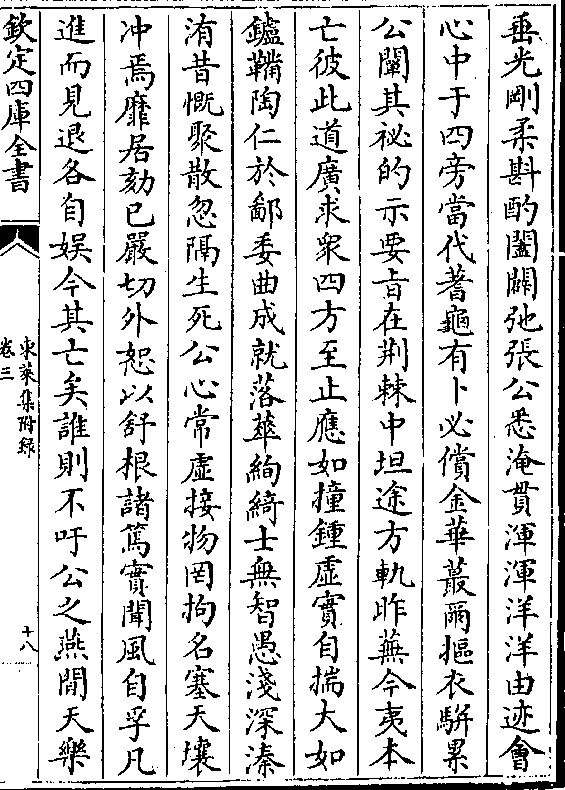 垂光剛柔斟酌闔闢弛張公悉淹貫渾渾洋洋由迹會
心中于四旁當代蓍龜有卜必償金華蕞爾摳衣駢累
公闡其祕的示要㫖在荆棘中坦途方軌昨蕪今夷本
亡彼此道廣求衆四方至止應如撞鍾虛實自揣大如
鑪鞴陶仁於鄙委曲成就落華絢綺士無智愚淺深溱
洧昔慨聚散忽隔生死公心常虛接物罔拘名塞天壤
冲焉靡居劾已嚴切外恕以舒根諸篤實聞風自孚凡
進而見退各自娱今其亡矣誰則不吁公之燕閒天樂
欽定四庫全書
東萊集附録
卷三
十八